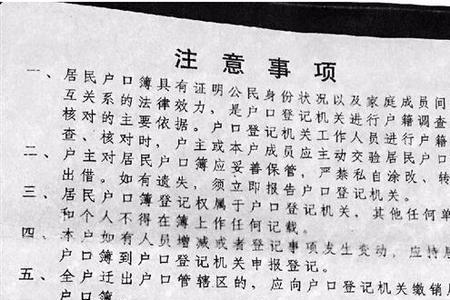 注意事项
一、居民户口簿具有证明公民身份状况以及家庭成员间
互关系的法律效力，是户口登记机关进行户籍调查
核对的主要依据。户口登记机关工作人员进行户籍
查、核对时，户主或本户成员应主动交验居民户口
二、户主对居民户口簿应妥善保管，严禁私自涂改、转
出借。如有遗失，须立即报告户口登记机关。
三、居民户口簿登记权属于户口登记机关，其他任何单
和个人不得在簿上作任何记载。
四、本户如有人员增减或者登记事项发生变动，应持居
户口簿到户口登记机关申报登记。
五、全户迁出户口管辖区的，应向户口登记机关缴销居
户口簿